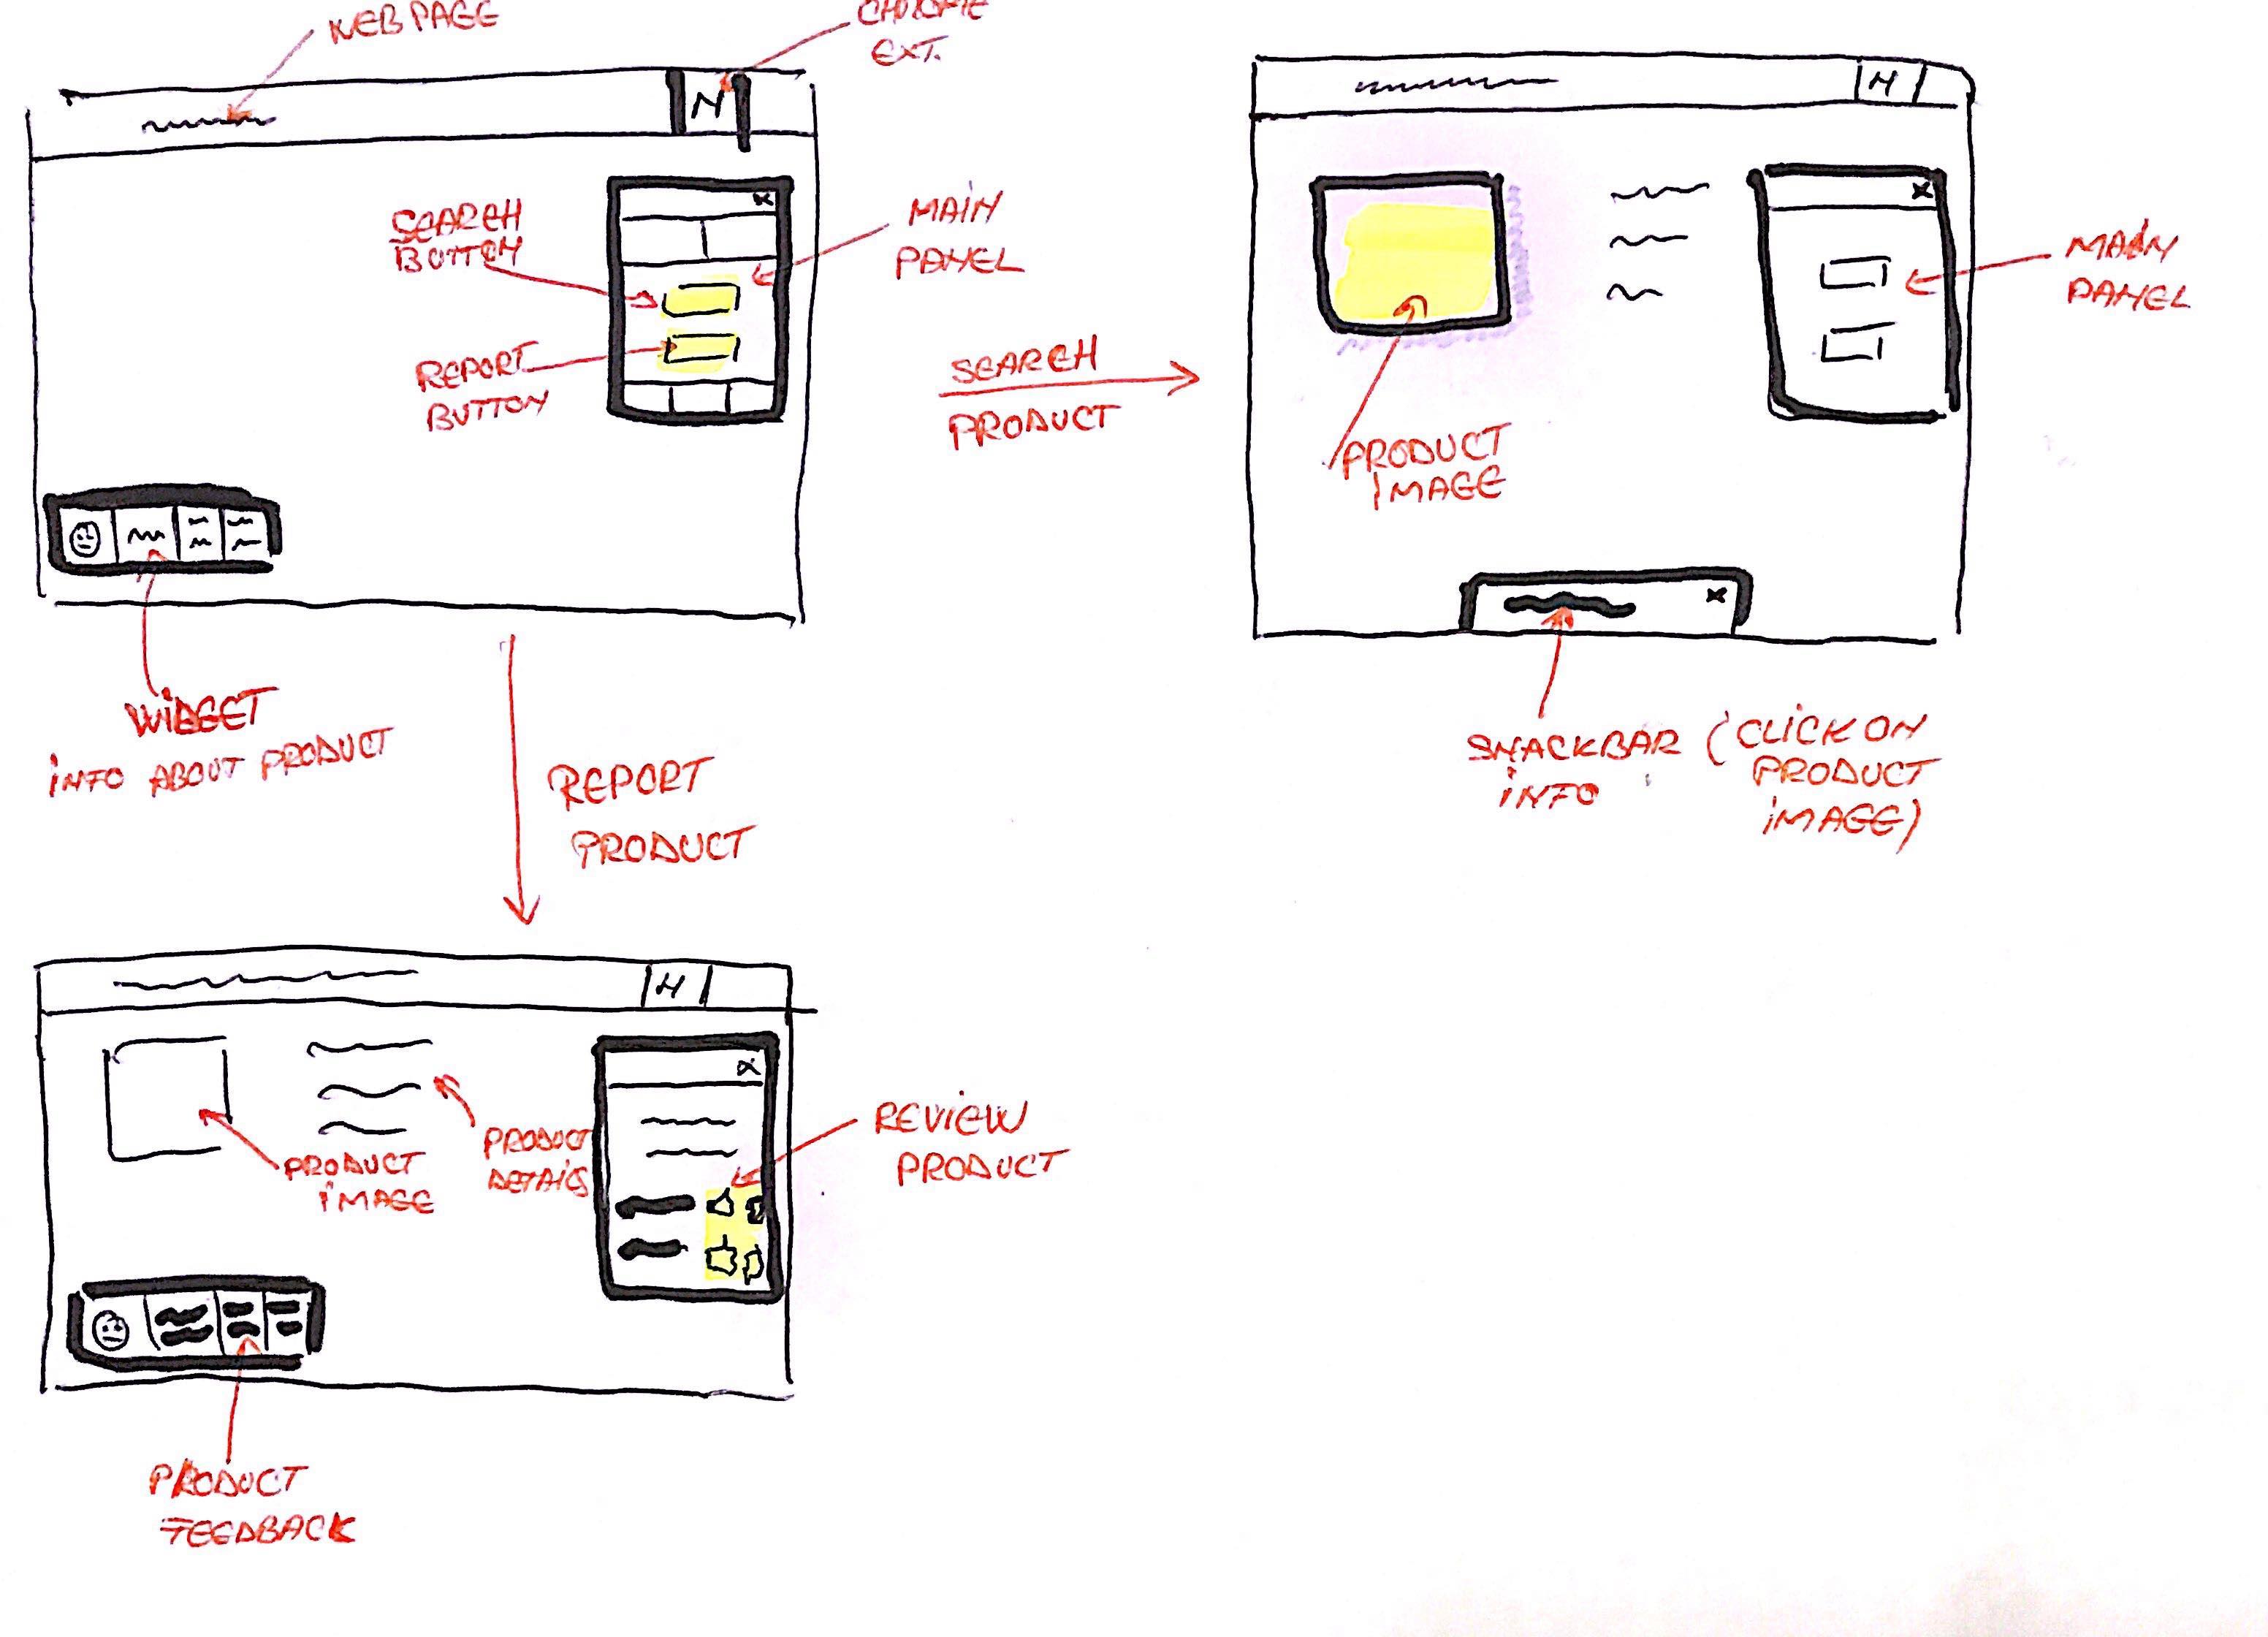 WEBPAGE
CHROME
EXT.
N
SEARCH
BUTTON
MAIN
PANEL
REPORT
BUTTON
WIDGET
INFO ABOUT PRODUCT
SEARCH
PRODUCT
N
x
MAIN
PANEL
PRODUCT
IMAGE
SNACKBAR (CLICK ON
INFO PRODUCT
IMAGE)
REPORT
PRODUCT
N
x
PRODUCT
IMAGE
PRODUCT
DETAILS
REVIEW
PRODUCT
PRODUCT
FEEDBACK